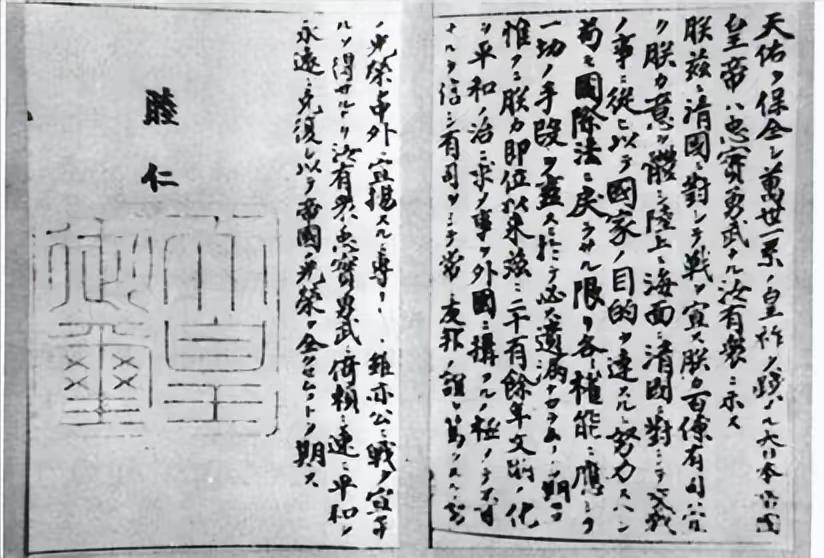 天佑ヲ保全シ萬世一系ノ皇祚ヲ踐メル大日本帝國
皇帝ハ忠實勇武ナル汝有衆ニ示ス
朕茲ニ清國ニ對シテ戰ヲ宣ス朕カ百僚有司ハ宜
ク朕カ意ヲ體シ陸上ニ海面ニ清國ニ對シテ交戰
ノ事ニ從ヒ以テ國家ノ目的ヲ達スルニ努力スヘシ
苟モ國際法ニ戾ラサル限リ各々權能ニ應シテ
一切ノ手段ヲ盡スニ於テ必ス遺漏ナカラムコトヲ期セヨ
惟フニ朕カ即位以來茲ニ二十有餘年文明ノ化
ヲ平和ノ治ニ求メ事ヲ外國ニ構フルノ極メテ不可
ナルヲ信シ有司ヲシテ常ニ友邦ノ誼ヲ篤クスルニ努
ノ光榮ヲ中外ニ宣揚スルニ專ナリ雖亦公ニ戰ヲ宣セサ
ルヲ得サルナリ汝有衆ノ忠實勇武ニ倚賴シ速ニ平和ヲ
永遠ニ克復シ以テ帝國ノ光榮ヲ全クセムコトヲ期ス
睦仁
天皇
御璽